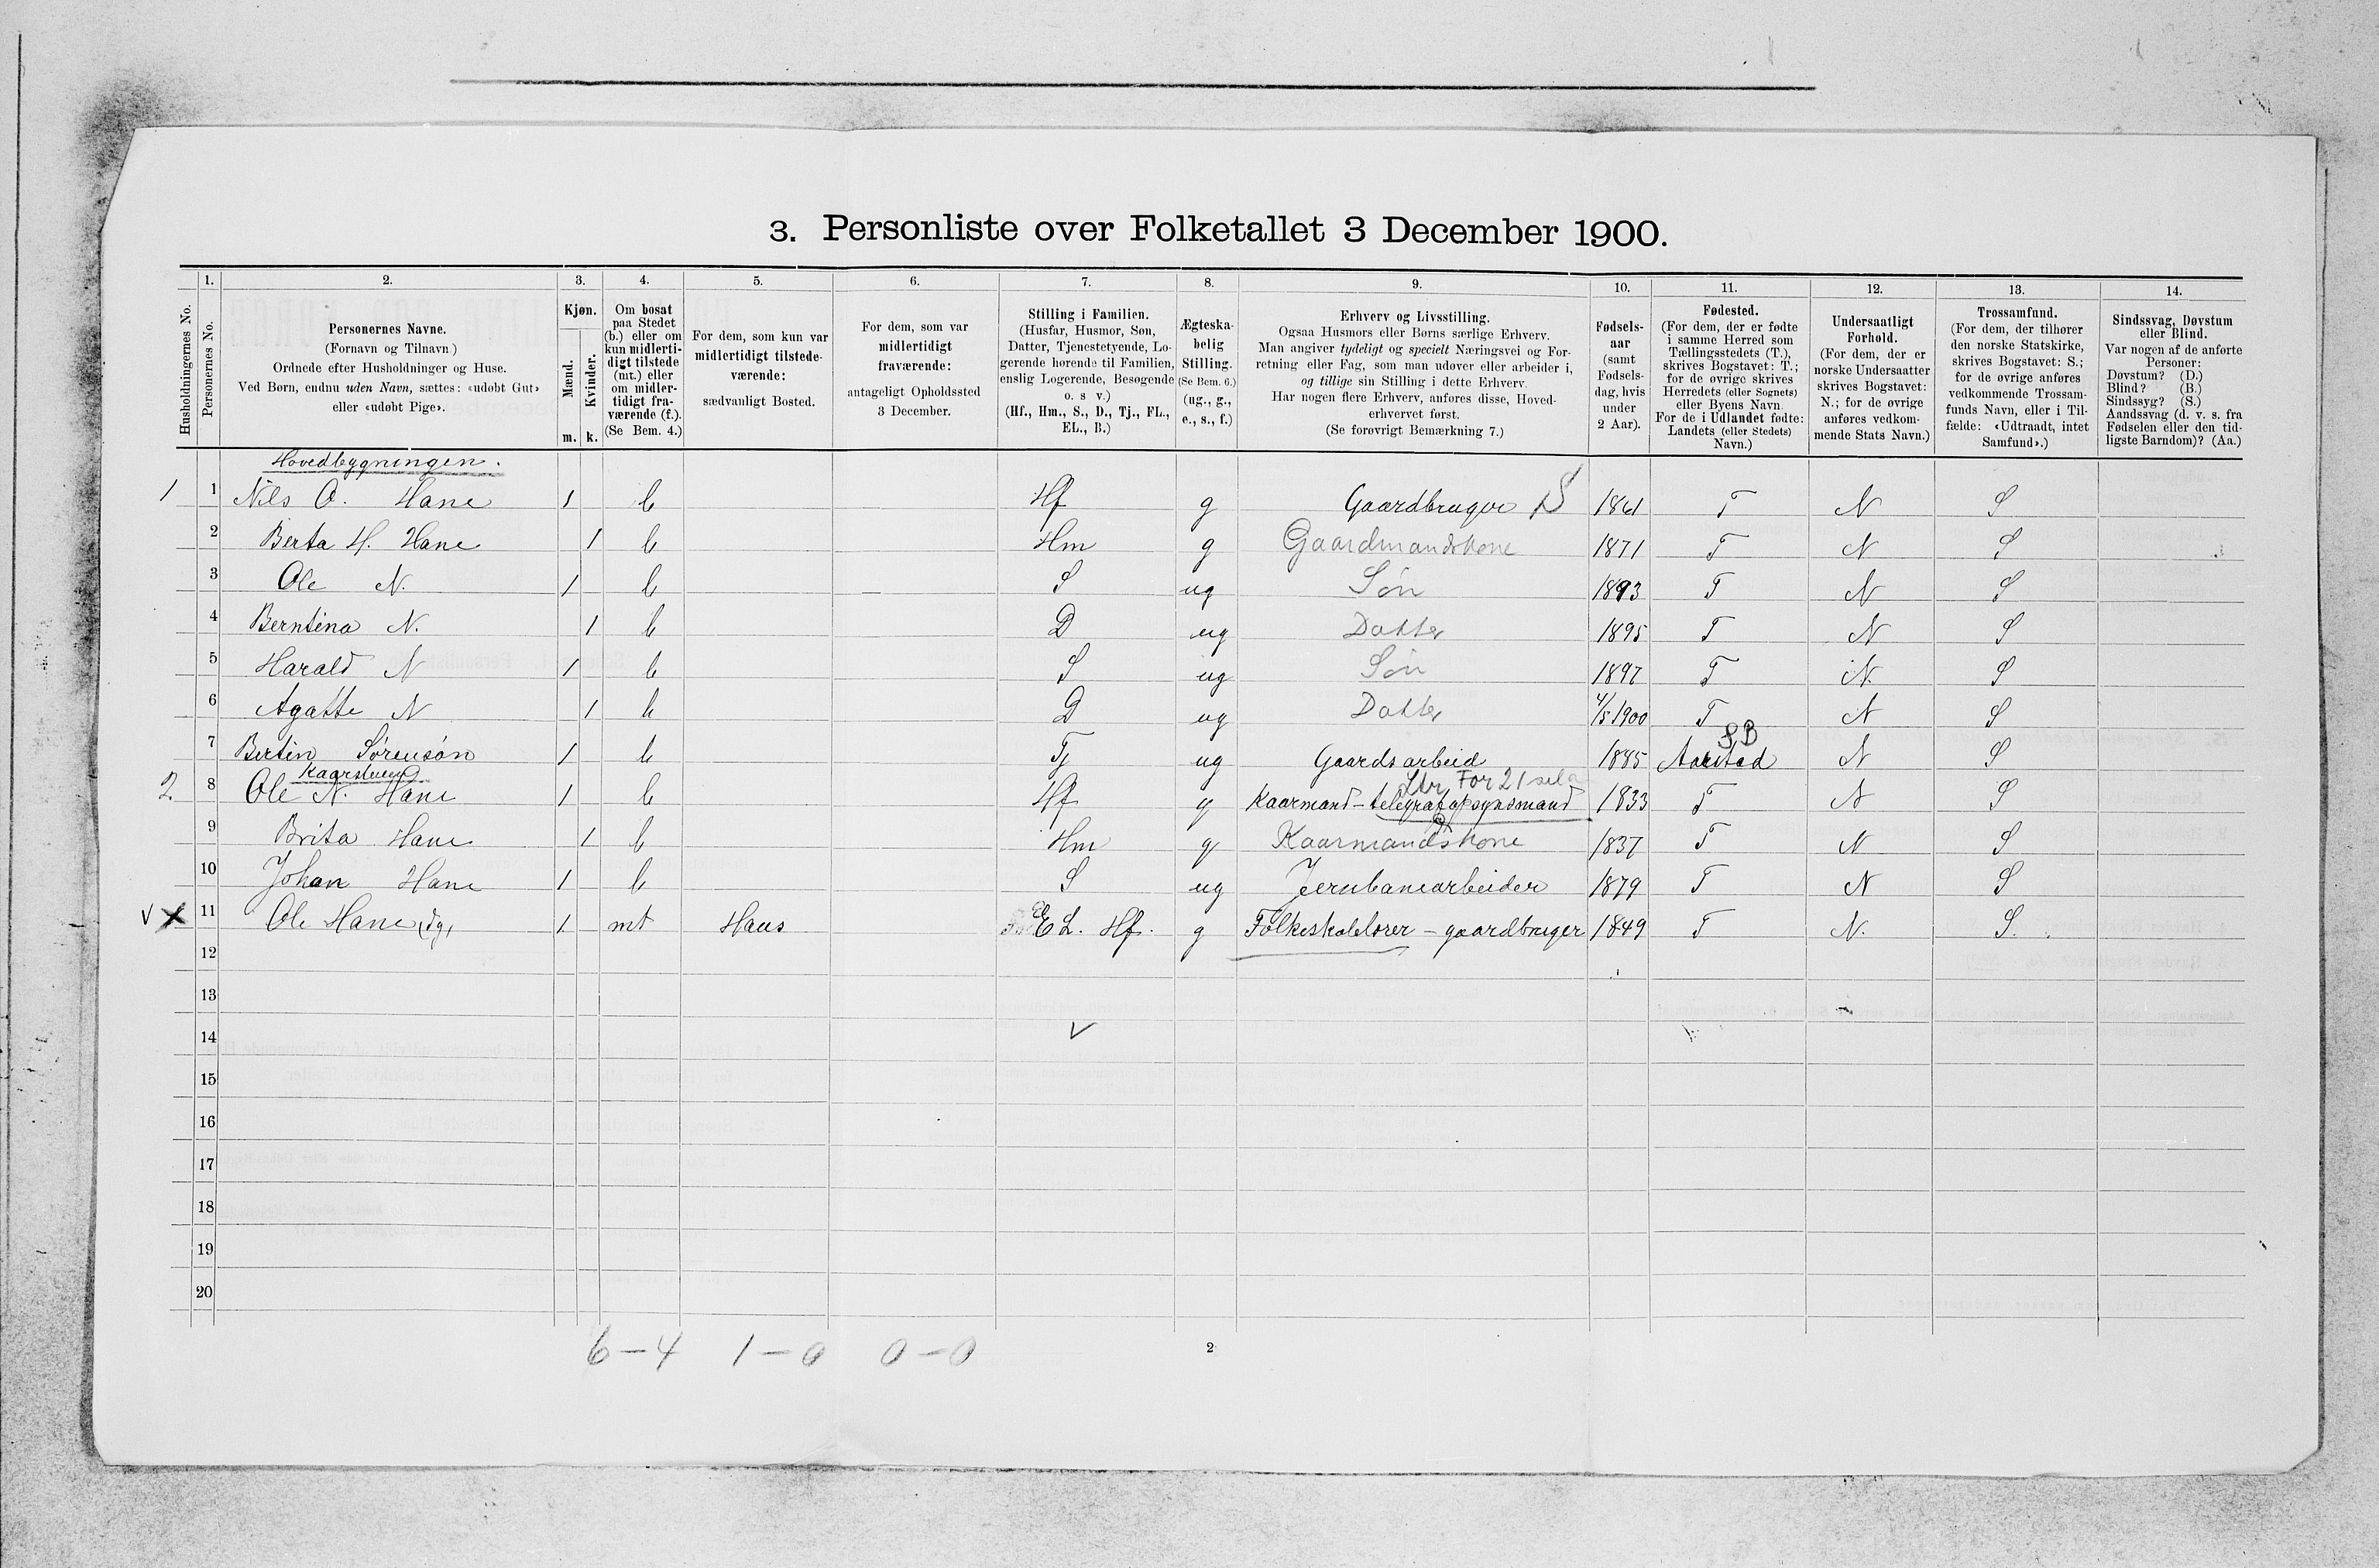 3. Personliste over Folketallet 3 December 1900.
1. 2. 3. 4. 5. 6. 7. 8. 9. 10. 11. 12. 13. 14.
Husholdningernes No.
Personernes No.
Personernes Navne.
(Fornavn og Tilnavn)
Ordnede efter Husholdninger og Huse.
Ved Børn, endnu uden Navn, sættes: «udøbt Gut»
eller «udøbt Pige».
Kjøn.
Mænd.
Kvinder.
m. k.
Om bosat
paa Stedet
(b.) eller om
kun midlerti-
digt tilstede
(mt.) eller
om midler-
tidigt fra-
værende (f.).
(Se Bem. 4.)
For dem, som kun var
midlertidigt tilstede-
værende:
sædvanligt Bosted.
For dem, som var
midlertidigt
fraværende:
antageligt Opholdssted
3 December.
Stilling i Familien.
(Husfar, Husmor, Søn,
Datter, Tjenestetyende, Lo-
gerende hørende til Familien,
enslig Logerende, Besøgende
o. s v.)
(Hf., Hm., S., D., Tj., FL.,
EL., B.)
Ægteska-
belig
Stilling.
(Se Bem. 6.)
(ug., g.,
e., s., f.)
Erhverv og Livsstilling.
Ogsaa Husmors eller Børns særlige Erhverv.
Man angiver tydeligt og specielt Næringsvei og For-
retning eller Fag, som man udøver eller arbeider i,
og tillige sin Stilling i dette Erhverv.
Har nogen flere Erhverv, anføres disse, Hoved-
erhvervet først.
(Se forøvrigt Bemærkning 7.)
Fødsels-
aar
(samt
Fødsels-
dag, hvis
under
2 Aar).
Fødested.
(For dem, der er fødte
i samme Herred som
Tællingsstedets (T.),
skrives Bogstavet: T.;
for de øvrige skrives
Herredets (eller Sognets)
eller Byens Navn.
For de i Udlandet fødte:
Landets (eller Stedets)
Navn.)
Undersaatligt
Forhold.
(For dem, der er
norske Undersaatter
skrives Bogstavet:
N.; for de øvrige
anføres vedkom-
mende Stats Navn.)
Trossamfund.
(For dem, der tilhører
den norske Statskirke,
skrives Bogstavet: S.;
for de øvrige anføres
vedkommende Trossam-
funds Navn, eller i Til-
fælde: «Udtraadt, intet
Samfund».)
Sindssvag, Døvstum
eller Blind.
Var nogen af de anførte
Personer:
Døvstum? (D.)
Blind? (B.)
Sindssyg? (S.)
Aandssvag (d. v. s. fra
Fødselen eller den tid-
ligste Barndom)? (Aa.)
Hovedbygningen.
1 1 Nils O. Hane 1 b Hf g Gaardbruger S 1861 T N S
2 Berta H. Hane 1 b Hm g Gaardmandskone 1871 T N S
3 Ole N. 1 b S ug Søn 1893 T N S
4 Berntina N. 1 b D ug Datter 1895 T N S
5 Harald N 1 b S ug Søn 1897 T N S
6 Agatte N 1 b D ug Datter 4/5 1900 T N S
SB
7 Bertin Sørensøn 1 b Tj ug Gaardsarbeid 1885 Aarstad N S
Kaarstuen
2 8 Ole N. Hane 1 b Hf g Kaarmand - telegrafopsynsmand 1833 T N S
9 Brita Hane 1 b Hm g Kaarmandskone 1837 T N S
10 Johan Hane 1 b S ug Jernbanearbeider 1879 T N S
11 Ole Hane 1 mt Haus EL. Hf. g Folkeskolelærer - gaardbruger 1849 T N. S.
12
13
14
15
16
17
18
19
20
6-4 1-0 0-0
2